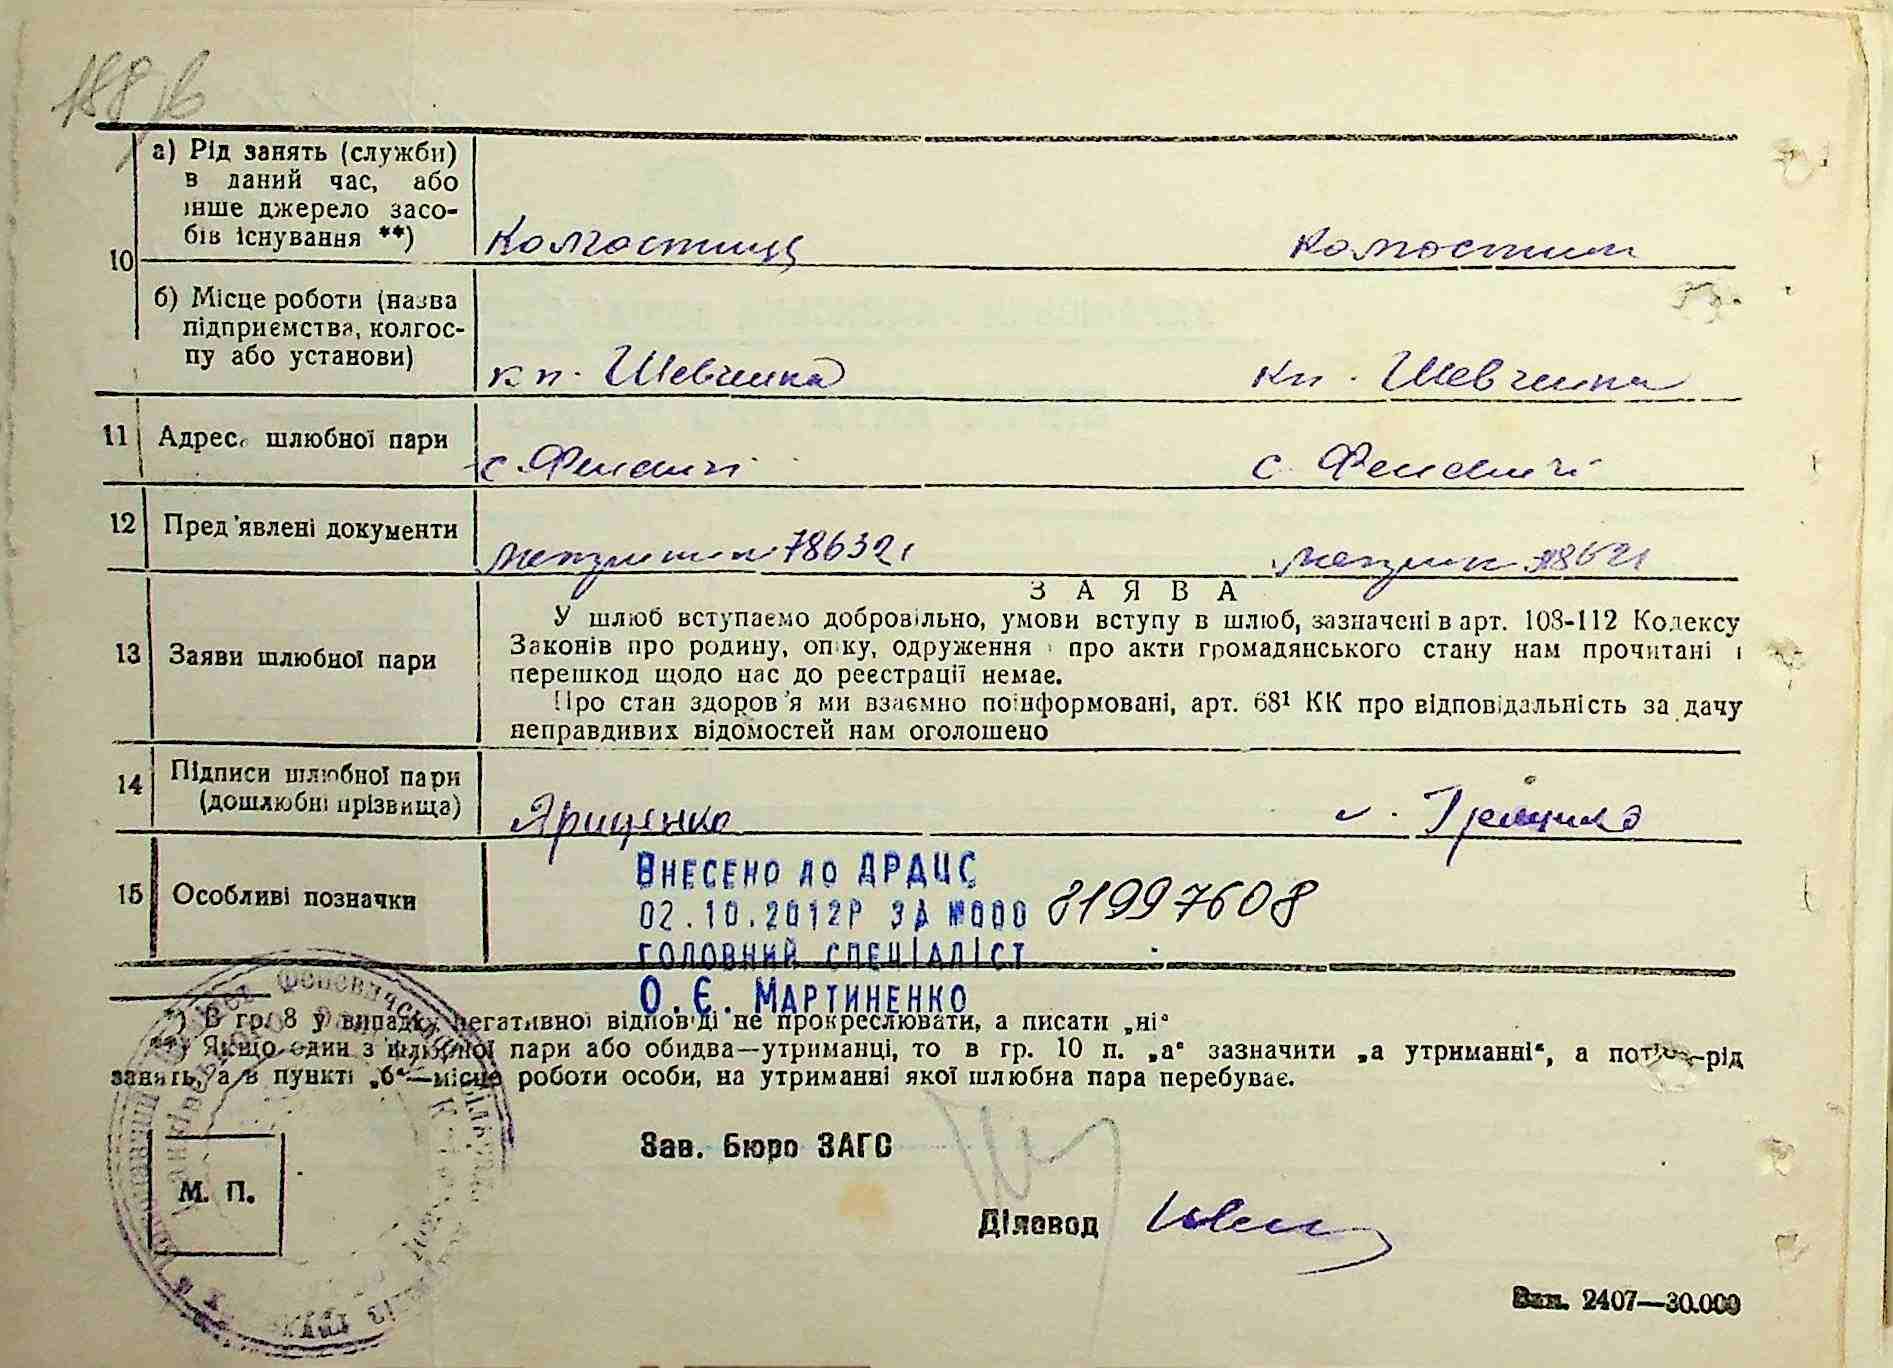 188 зв
10
а) Рід занять (служби)
в даний час, або
інше джерело засо-
бів існування **)
Колгоспниця
колгоспник
б) Місце роботи (назва
підприємства, колгос-
пу або установи)
кп. Шевченка
кп. Шевченка
11 Адреса шлюбної пари
с. Феневичі
с. Феневичі
12 Пред'явлені документи
786321
13 Заяви шлюбної пари
ЗАЯВА
У шлюб вступаємо добровільно, умови вступу в шлюб, зазначені в арт. 108-112 Кодексу
Законів про родину, опіку, одруження і про акти громадянського стану нам прочитані і
перешкод щодо нас до реєстрації немає.
Про стан здоров'я ми взаємно поінформовані, арт. 68¹ КК про відповідальність за дачу
неправдивих відомостей нам оголошено
14 Підписи шлюбної пари
(дошлюбні прізвища)
Яриценко
15 Особливі позначки
ВНЕСЕНО ДО ДРАЦС
02.10.2012Р ЗА №000 81997608
ГОЛОВНИЙ СПЕЦІАЛІСТ
О.Є. МАРТИНЕНКО
*) В гр. 8 у випадку негативної відповіді не прокреслювати, а писати „ні“
**) Якщо один з шлюбної пари або обидва—утриманці, то в гр. 10 п. „а“ зазначити „а утриманні“, а потім—рід
занять, а в пункті „б“—місце роботи особи, на утриманні якої шлюбна пара перебуває.
Зав. Бюро ЗАГС
М. П.
Діловод
Зам. 2407—30.000